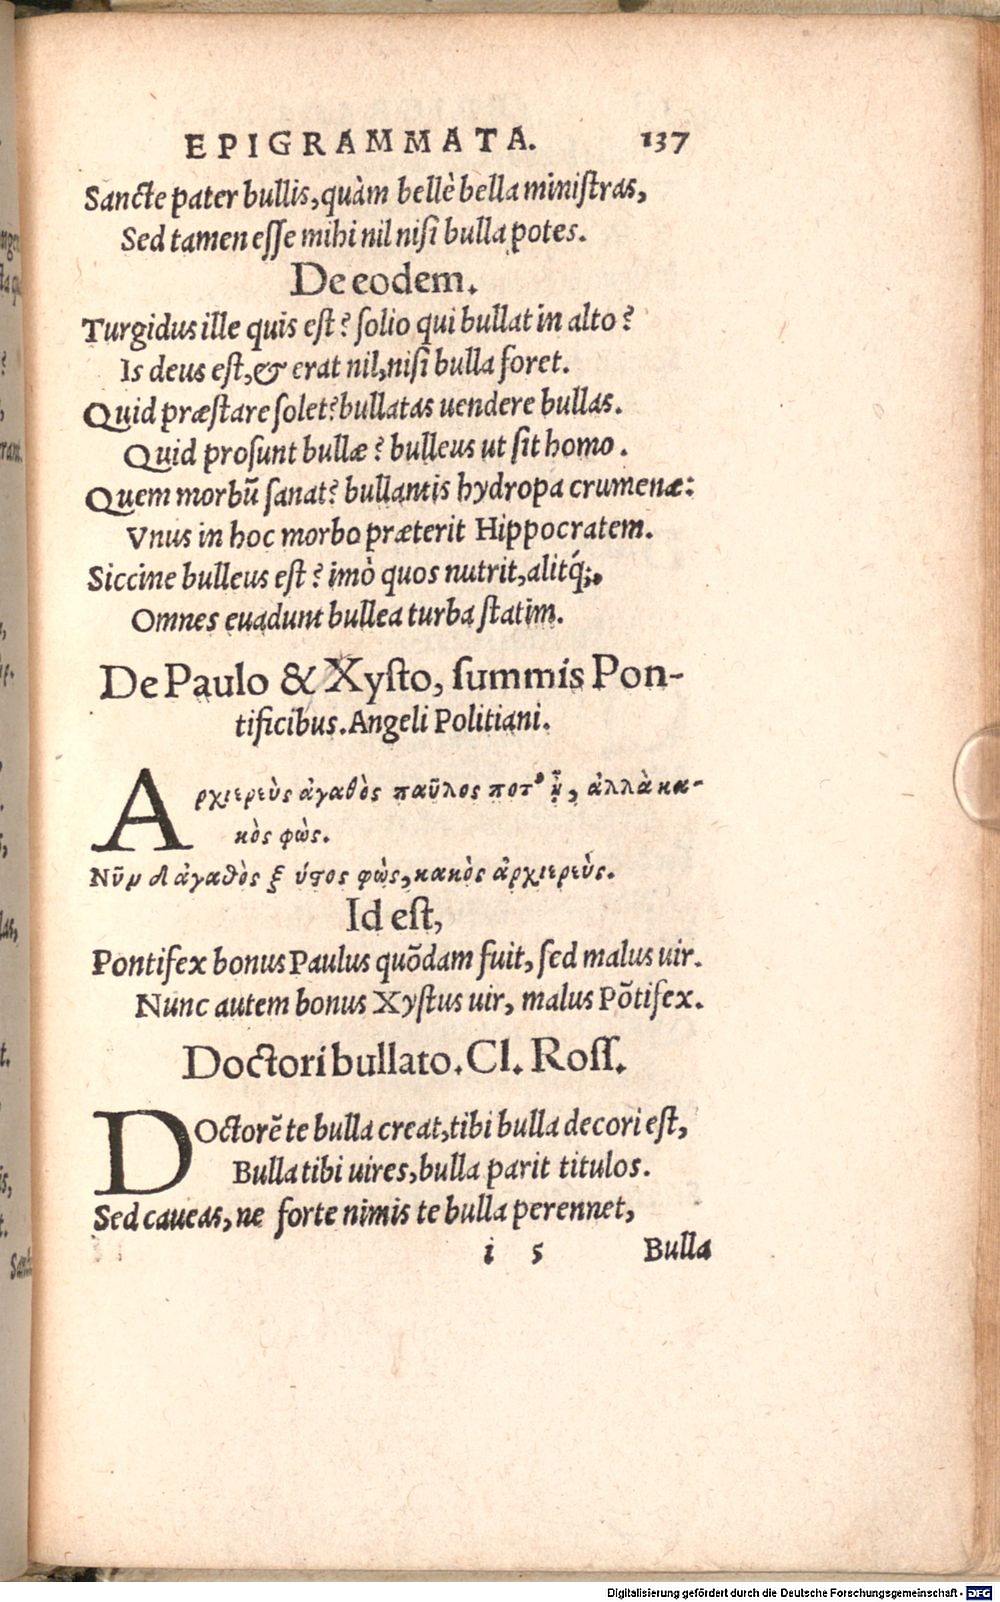 EPIGRAMMATA. 137
Sancte pater bullis, quàm bellè bella ministras,
Sed tamen esse mihi nil nisi bulla potes.
De eodem.
Turgidus ille quis est? solio qui bullat in alto?
Is deus est, & erat nil, nisi bulla foret.
Quid præstare solet? bullatas uendere bullas.
Quid prosunt bullæ? bulleus ut sit homo.
Quem morbũ sanat? bullantis hydropa crumenæ:
Vnus in hoc morbo præterit Hippocratem.
Siccine bulleus est? imò quos nutrit, alitq́;,
Omnes euadunt bullea turba statim.
De Paulo & Xysto, summis Pon-
tificibus. Angeli Politiani.
Αρχιερεὺς ἀγαθὸς παῦλος ποτ' ἦν, ἀλλὰ κα-
κὸς φὼς.
Νῦν δ' ἀγαθὸς ξύστος φὼς, κακὸς ἀρχιερεὺς.
Id est,
Pontifex bonus Paulus quõdam fuit, sed malus uir.
Nunc autem bonus Xystus uir, malus Põtifex.
Doctori bullato. Cl. Ross.
DOctorẽ te bulla creat, tibi bulla decori est,
Bulla tibi uires, bulla parit titulos.
Sed caueas, ne forte nimis te bulla perennet,
i 5 Bulla
Digitalisierung gefördert durch die Deutsche Forschungsgemeinschaft - DFG